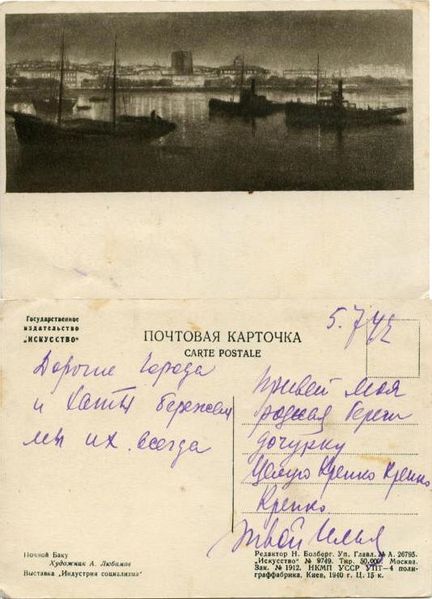 Государственное
издательство
„ИСКУССТВО"
ПОЧТОВАЯ КАРТОЧКА
CARTE POSTALE
5.7 42
Дорогие города
и хаты бережем
мы их всегда
Привет моя
родная береги
дочурку
Целую Крепко Крепко
Крепко
твой Илья
Ночной Баку
Художник А. Любимов
Выставка „Индустрия социализма"
Редактор Н. Болберг. Уп. Главл. № А. 26795.
„Искусство" № 9749. Тир. 50.000. Москва.
Зак. № 1912. НКМП УССР УПТ—4 поли-
граффабрика, Киев, 1940 г. Ц. 15 к.